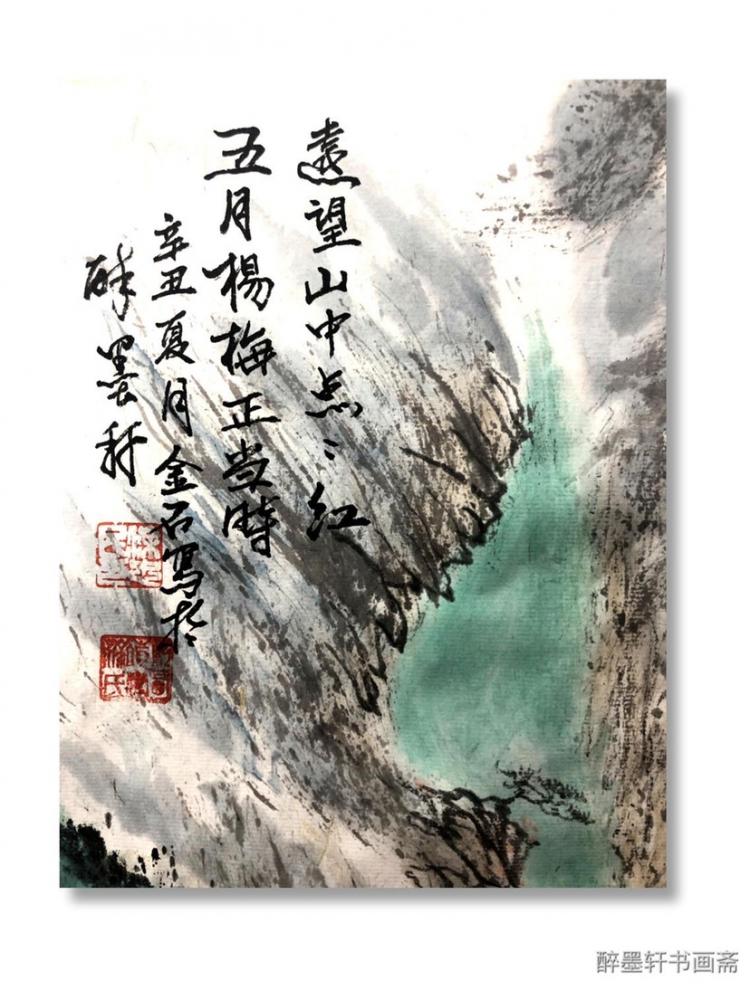 遠望山中点〻红
五月楊梅正当時
辛丑夏月金石写於
醉墨轩
醉墨轩书画斋